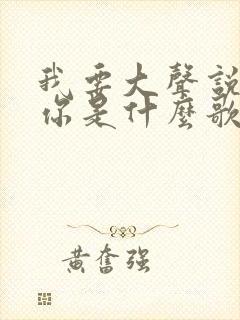 我要大聲說
你是什麼歌
黃奮强